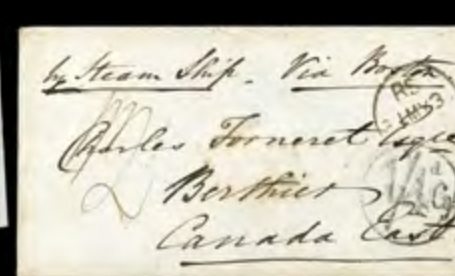 by Steam Ship. Via Boston
Charles Forneret Esqre
Berthier
Canada East